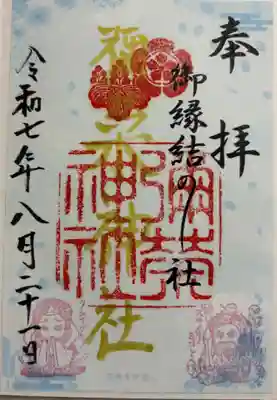 奉拝
御縁結の社
彌栄神社
彌榮
神社
令和七年八月二十一日